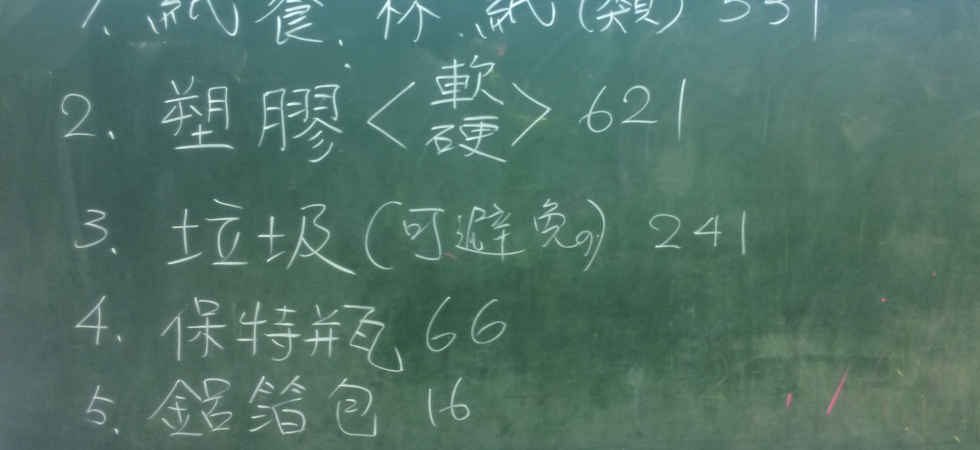 1. 紙餐杯.紙(類) 551
2. 塑膠<軟硬> 621
3. 垃圾(可避免) 241
4. 保特瓶 66
5. 鋁箔包 16